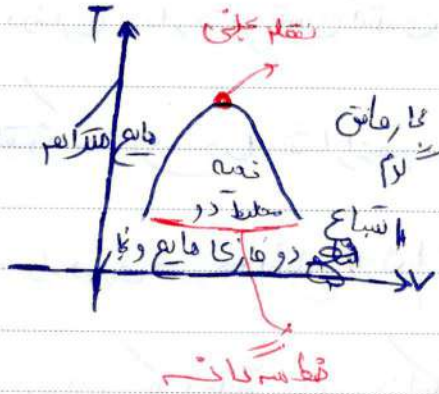 T
نقطه بحرانی
مایع متراکم
بخار مافوق
گرم
ناحیه
مخلوط دو
اشباع
دو فازی مایع و بخار
V
خط سه گانه